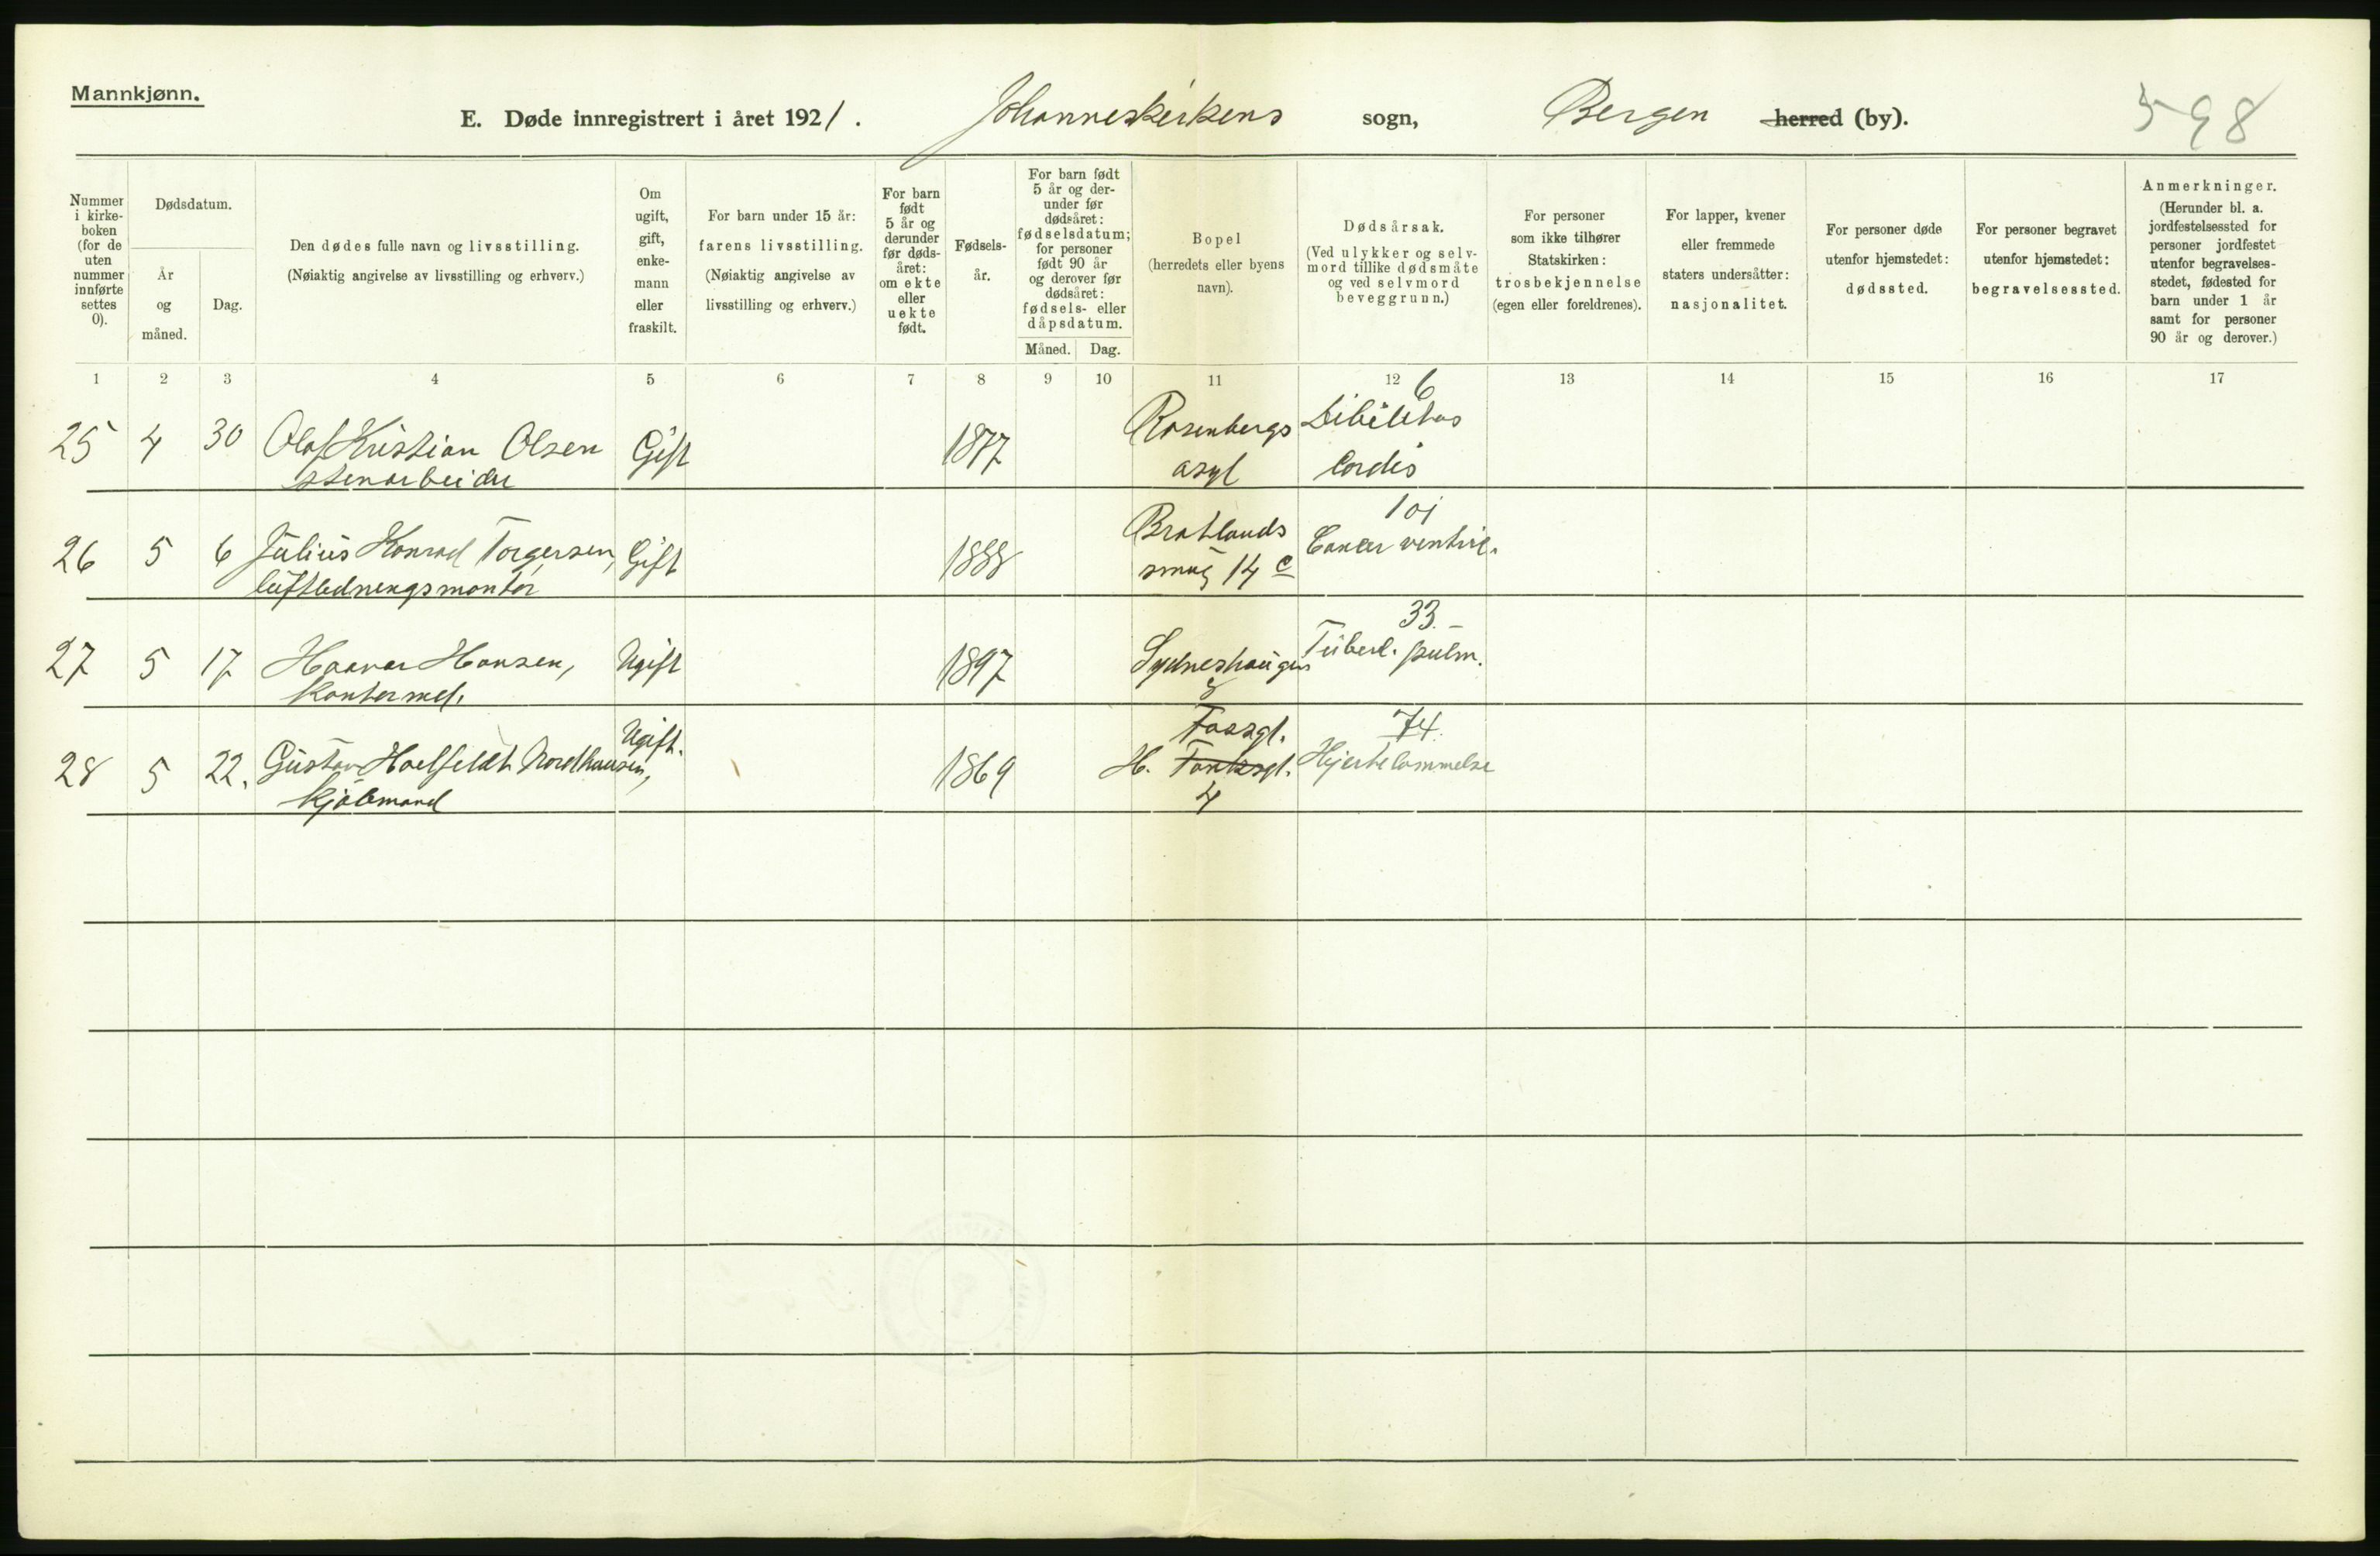 Mannkjønn.
E. Døde innregistrert i året 1921. Johanneskirkens sogn, Bergen herred (by). 598
Nummer i kirke- boken (for de uten nummer innførte settes 0).
Dødsdatum.
År og måned.
Dag.
Den dødes fulle navn og livsstilling.
(Nøiaktig angivelse av livsstilling og erhverv.)
Om ugift, gift, enke- mann eller fraskilt.
For barn under 15 år:
farens livsstilling.
(Nøiaktig angivelse av
livsstilling og erhverv.)
For barn født 5 år og derunder før døds- året: om ekte eller uekte født.
Fødsels- år.
For barn født
5 år og der-
under før
dødsåret:
fødselsdatum;
for personer
født 90 år
og derover før
dødsåret:
fødsels- eller
dåpsdatum.
Måned. Dag.
Bopel
(herredets eller byens
navn).
Dødsårsak.
(Ved ulykker og selv-
mord tillike dødsmåte
og ved selvmord
beveggrunn.)
For personer
som ikke tilhører
Statskirken:
trosbekjennelse
(egen eller foreldrenes).
For lapper, kvener
eller fremmede
staters undersåtter:
nasjonalitet.
For personer døde
utenfor hjemstedet:
dødssted.
For personer begravet
utenfor hjemstedet:
begravelsessted.
Anmerkninger.
(Herunder bl. a.
jordfestelsessted for
personer jordfestet
utenfor begravelses-
stedet, fødested for
barn under 1 år
samt for personer
90 år og derover.)
1 2 3 4 5 6 7 8 9 10 11 12 13 14 15 16 17
6
25 4 30 Olaf Kristian Olsen Gift 1877 Rosenbergs Debilitas
stenarbeider asyl Cordis
101
26 5 6 Julius Konrad Torgersen, Gift 1888 Bratlands Cancer ventric.
luftledningsmontør smug 14 c
33.
27 5 17 Hansen, Ugift 1897 Sydneshaugen Tuberl. pulm.
Kontormed.
Ugift. Fossgt. 74.
28 5 22. Gustav Nordhausen, 1869 H. Hjertelammelse
Kjøbmand 4